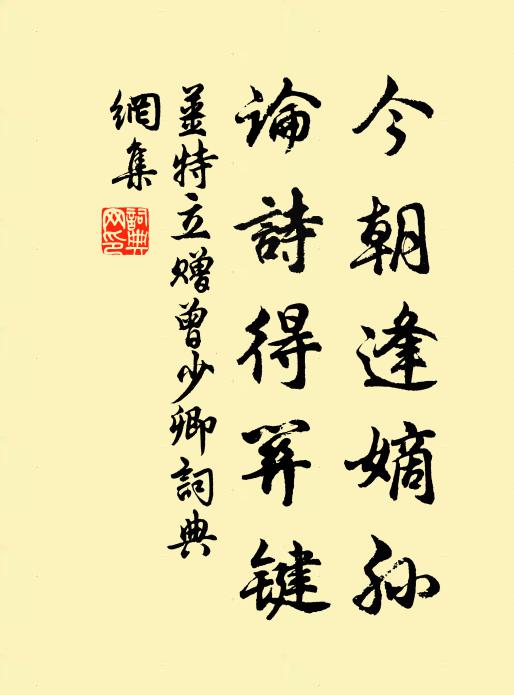 今朝逢嫡孙
論詩得关键
薑特立贈曾少卿詞典
網集
詞典
网印